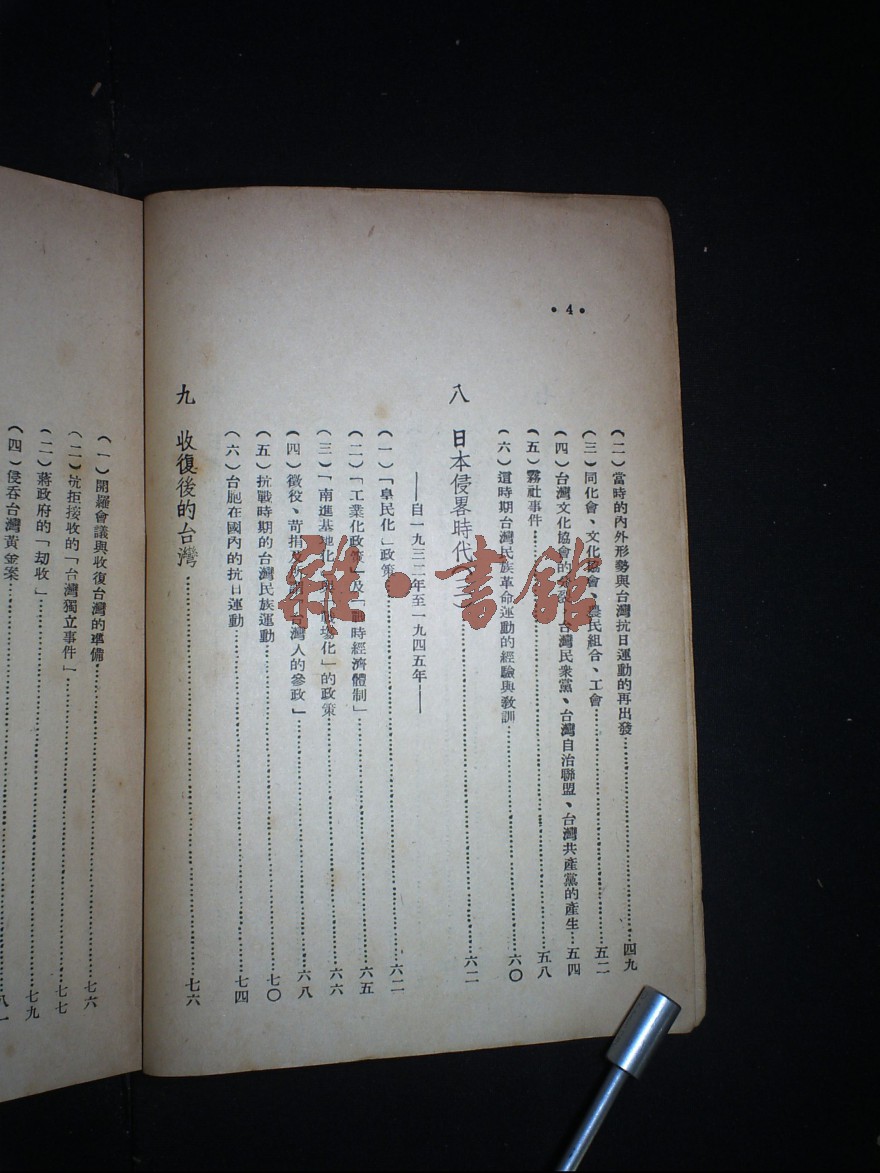 • 4 •
(二)當時的內外形勢與台灣抗日運動的再出發……四九
(三)同化會、文化協會、農民組合、工會……五二
(四)台灣文化協會的分裂、台灣民衆黨、台灣自治聯盟、台灣共產黨的產生……五四
(五)霧社事件……五八
(六)這時期台灣民族革命運動的經驗與教訓……六〇
八 日本侵畧時代(三)……六二
——自一九三二年至一九四五年——
(一)「皇民化」政策……六二
(二)「工業化政策」及「戰時經濟體制」……六五
(三)「南進基地化」與「戰場化」的政策……六六
(四)徵役、苛捐及所謂「台灣人的參政」……六八
(五)抗戰時期的台灣民族運動……七〇
(六)台胞在國內的抗日運動……七四
九 收復後的台灣……七六
(一)開羅會議與收復台灣的準備……七六
(二)抗拒接收的「台灣獨立事件」……七七
蔣政府的「刧收」……七九
(四)侵吞台灣黃金案……八一
雜•書館